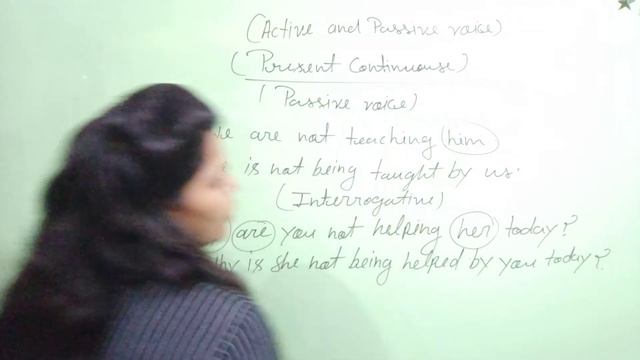 (Active and Passive voice)
(Present Continuouse)
(Passive voice)
are not teaching him
is not being taught by us.
(Interrogative)
are you not helping her today?
is she not being helped by you today?